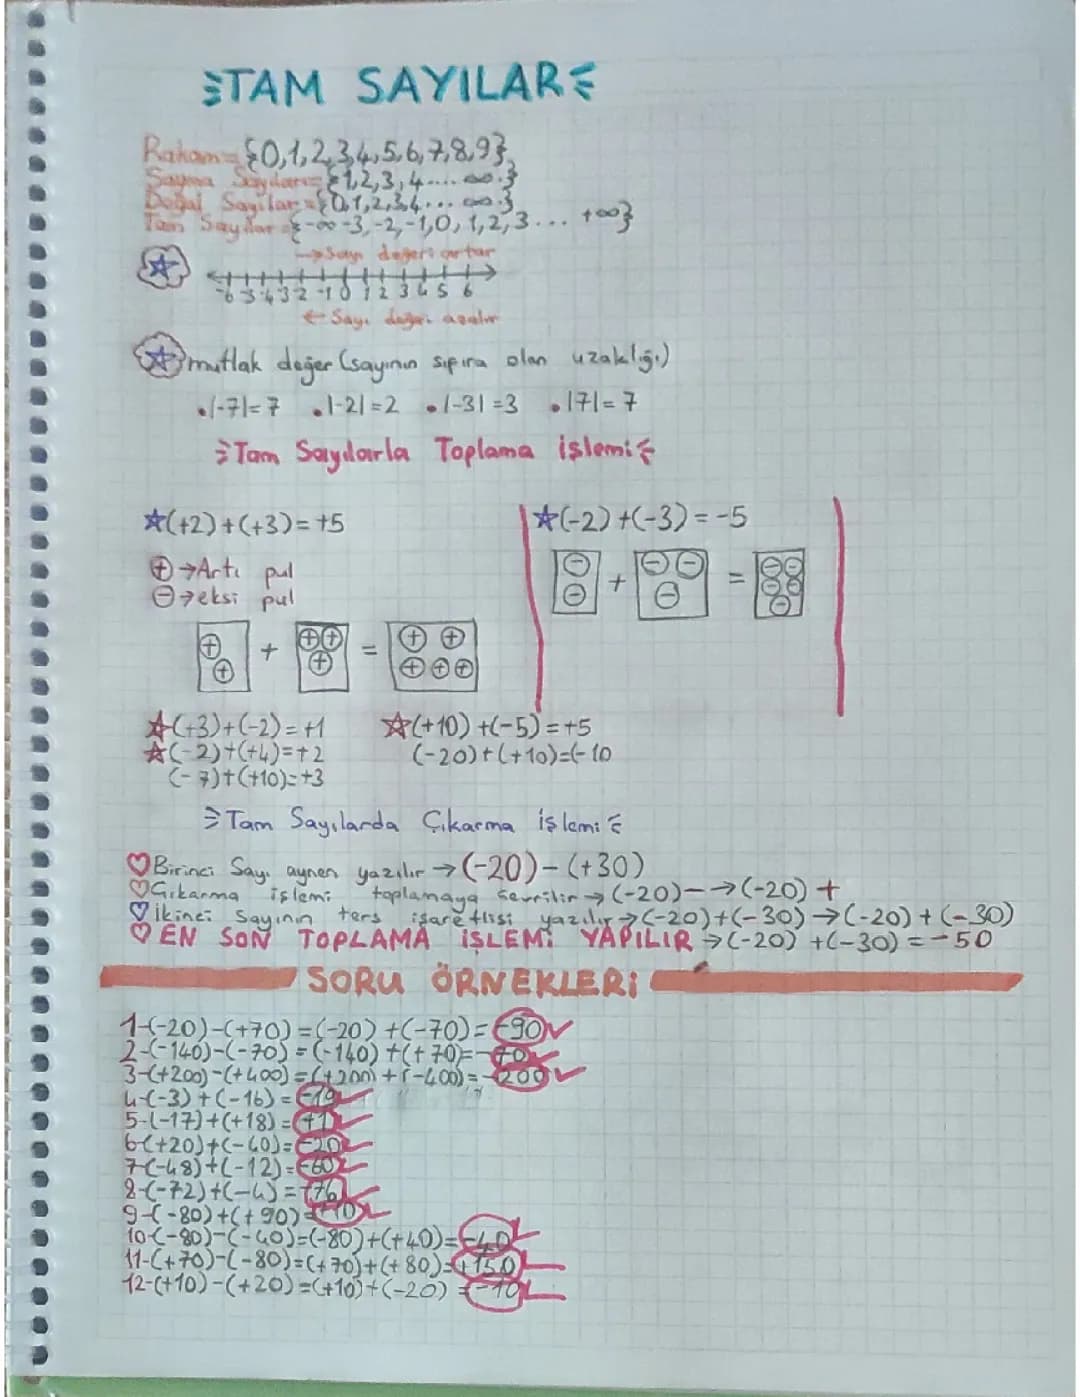 TAM SAYILAR
Rakam={0,1,2,3,4,5,6,7,8,9}
Sayma Sayıları={1,2,3,4.... ∞.}
Doğal Sayılar={0,1,2,3,4... ∞.}
Tam Sayılar={-∞-3,-2,-1,0,1,2,3... +∞}
→Sayı değeri artar
-6 -5 -4 -3 -2 -1 0 1 2 3 4 5 6
← Sayı değeri azalır
mutlak değer (sayının sıfıra olan uzaklığı)
•|-7|=7 •|-2|=2 •|-3|=3 •|7|=7
Tam Sayılarla Toplama işlemi
☆(+2)+(+3)=+5
⊕→Artı pul
⊖→eksi pul
+ =
☆(-2)+(-3)=-5
+ =
☆(+3)+(-2)=+1
☆(-2)+(+4)=+2
(-7)+(+10)=+3
☆(+10)+(-5)=+5
(-20)+(+10)=(-10
Tam Sayılarda Çıkarma işlemi
♡Birinci Sayı aynen yazılır→(-20)-(+30)
♡Çıkarma işlemi toplamaya çevrilir→(-20)-→(-20)+
♡İkinci Sayının ters işaretlisi yazılır→(-20)+(-30)→(-20)+(-30)
♡EN SON TOPLAMA İŞLEMİ YAPILIR→(-20)+(-30)=-50
SORU ÖRNEKLERİ
1-(-20)-(+70)=(-20)+(-70)=-90✓
2-(-140)-(-70)=(-140)+(+70)=-70✓
3-(+200)-(+400)=(+200)+(-400)=-200✓
4-(-3)+(-16)=-19✓
5-(-17)+(+18)=+1✓
6-(+20)+(-40)=-20✓
7-(-48)+(-12)=-60✓
8-(-72)+(-4)=-76✓
9-(-80)+(+90)=+10✓
10-(-80)-(-40)=(-80)+(+40)=-40✓
11-(+70)-(-80)=(+70)+(+80)=+150✓
12-(+10)-(+20)=(+10)+(-20)=-10✓